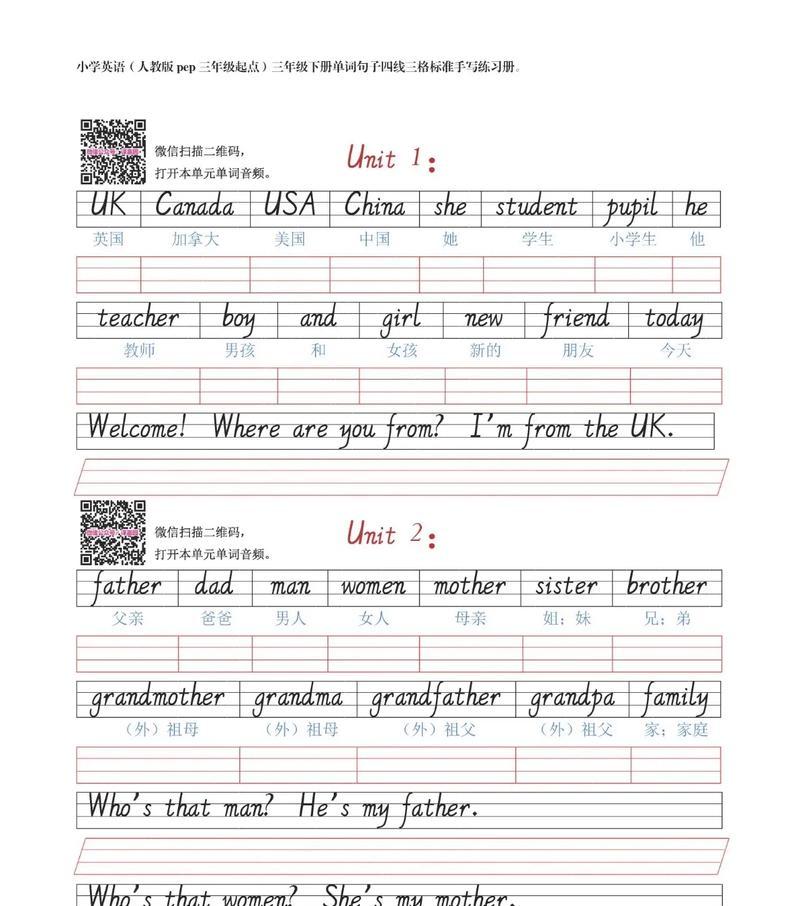 小学英语（人教版 pep 三年级起点）三年级下册单词句子四线三格标准手写练习册。
微信扫描二维码，
打开本单元单词音频。
Unit 1：
UK Canada USA China she student pupil he
英国 加拿大 美国 中国 她 学生 小学生 他
teacher boy and girl new friend today
教师 男孩 和 女孩 新的 朋友 今天
Welcome! Where are you from? I'm from the UK.
微信扫描二维码，
打开本单元单词音频。
Unit 2：
father dad man women mother sister brother
父亲 爸爸 男人 女人 母亲 姐；妹 兄；弟
grandmother grandma grandfather grandpa family
（外）祖母 （外）祖母 （外）祖父 （外）祖父 家；家庭
Who's that man? He's my father.
Who's that women? She's my mother.